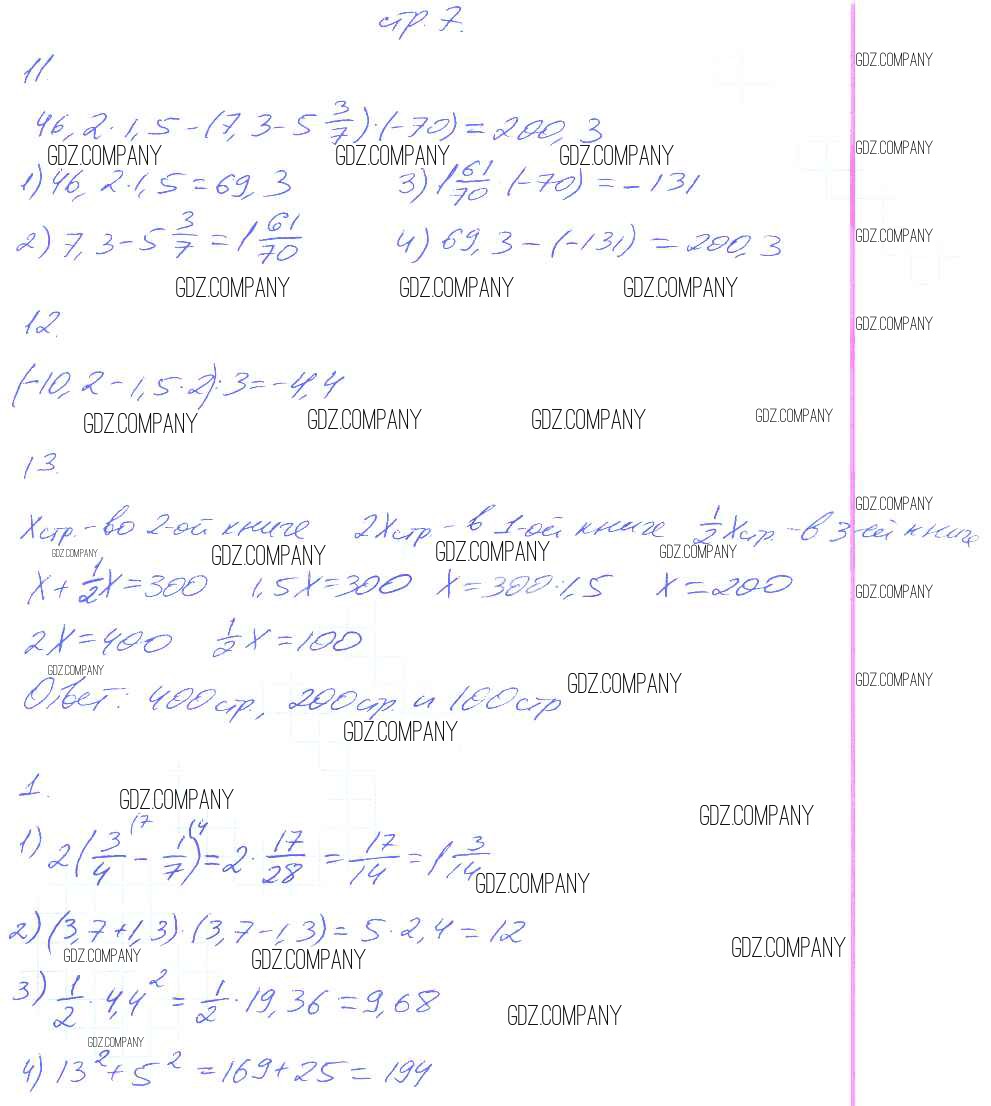 стр. 7.
11.
46,2·1,5-(7,3-5 3/7)·(-70)=200,3
GDZ.COMPANY GDZ.COMPANY GDZ.COMPANY GDZ.COMPANY
1) 46,2·1,5=69,3 3) 1 61/70·(-70)=-131
2) 7,3-5 3/7=1 61/70 4) 69,3-(-131)=200,3
GDZ.COMPANY
GDZ.COMPANY GDZ.COMPANY GDZ.COMPANY
12.
GDZ.COMPANY
(-10,2-1,5·2):3=-4,4
GDZ.COMPANY GDZ.COMPANY GDZ.COMPANY GDZ.COMPANY
13.
GDZ.COMPANY
Xстр.-во 2-ой книге 2Xстр-в 1-ой книге 1/2Xстр.-в 3-ей книге
GDZ.COMPANY GDZ.COMPANY GDZ.COMPANY GDZ.COMPANY
X+1/2X=300 1,5X=300 X=300:1,5 X=200
GDZ.COMPANY
2X=400 1/2X=100
GDZ.COMPANY GDZ.COMPANY GDZ.COMPANY
Ответ: 400стр., 200стр и 100стр
GDZ.COMPANY
1.
GDZ.COMPANY GDZ.COMPANY
1) 2(3/4(7-1/7)(4=2·17/28=17/14=1 3/14
GDZ.COMPANY
2) (3,7+1,3)·(3,7-1,3)=5·2,4=12
GDZ.COMPANY GDZ.COMPANY GDZ.COMPANY
3) 1/2·4,4²=1/2·19,36=9,68
GDZ.COMPANY
GDZ.COMPANY
4) 13²+5²=169+25=194
GDZ.COMPANY